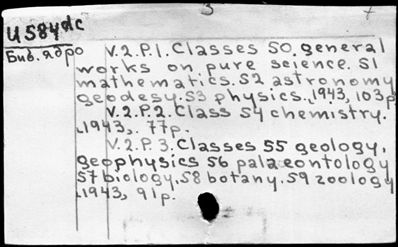 U 584dc
Бив. ядро
V.2.P.1. Classes 50. general
works on pure science. 51
mathematics. 52 astronomy
geodesy. 53 physics. 1943, 103p
V.2.P.2. Class 54 chemistry.
1943, 77p.
V.2.P.3. Classes 55 geology,
geophysics 56 palaeontology
57 biology. 58 botany. 59 zoology
1943, 91p.